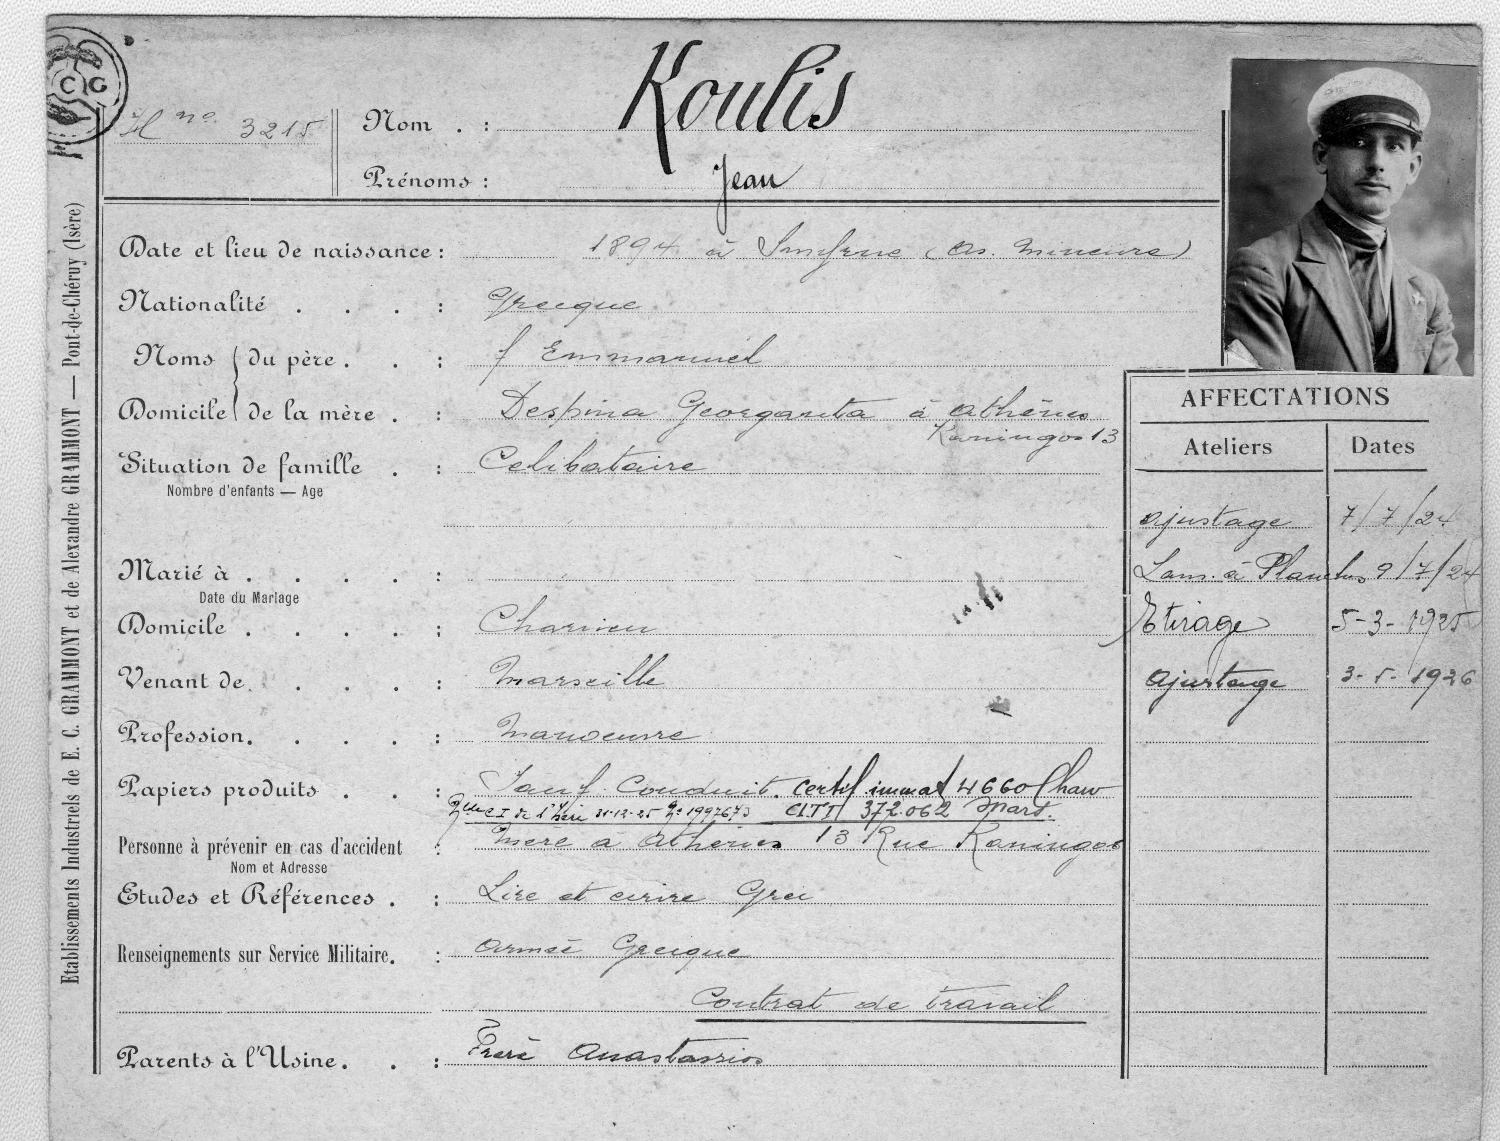 C G
nº 3215
Nom . : Koulis
Prénoms : Jean
Date et lieu de naissance : 1894 à Smyrne (As. Mineure)
Nationalité . . . : Grecque
Noms du père . . : f Emmanuel
Domicile de la mère . : Despina Georganta à Athènes
Kaningos 13
Situation de famille . : Celibataire
Nombre d'enfants — Age
Marié à . . . . :
Date du Mariage
Domicile . . . . : Charvieu
Venant de . . . . : Marseille
Profession . . . . : Manoeuvre
Papiers produits . . : Sauf Conduit. Certif immat 4660 Charv
C I de l'Isère 31-12-25 Nº 199767 CITI 372.062 Mars.
Personne à prévenir en cas d'accident : Mère à Athènes 13 Rue Kaningos
Nom et Adresse
Etudes et Références . : Lire et ecrire Grec
Renseignements sur Service Militaire. : Armée Grecque
Contrat de travail
Parents à l'Usine . . : Frère Anastassios
AFFECTATIONS
Ateliers Dates
ajustage 7/7/24
Lam. à Planches 9/7/24
Etirage 5-3-1925
Ajustage 3-5-1926
Etablissements Industriels de E. C. GRAMMONT et de Alexandre GRAMMONT — Pont-de-Chéruy (Isère)